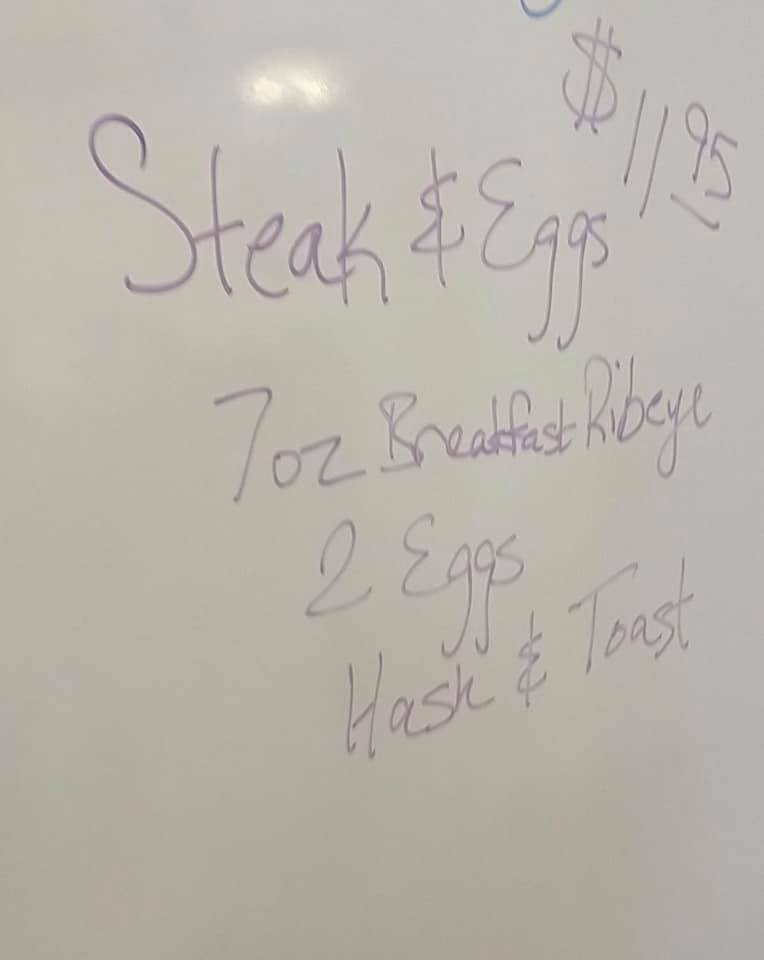 Steak & Eggs $11.95
7oz Breakfast Ribeye
2 Eggs
Hash & Toast